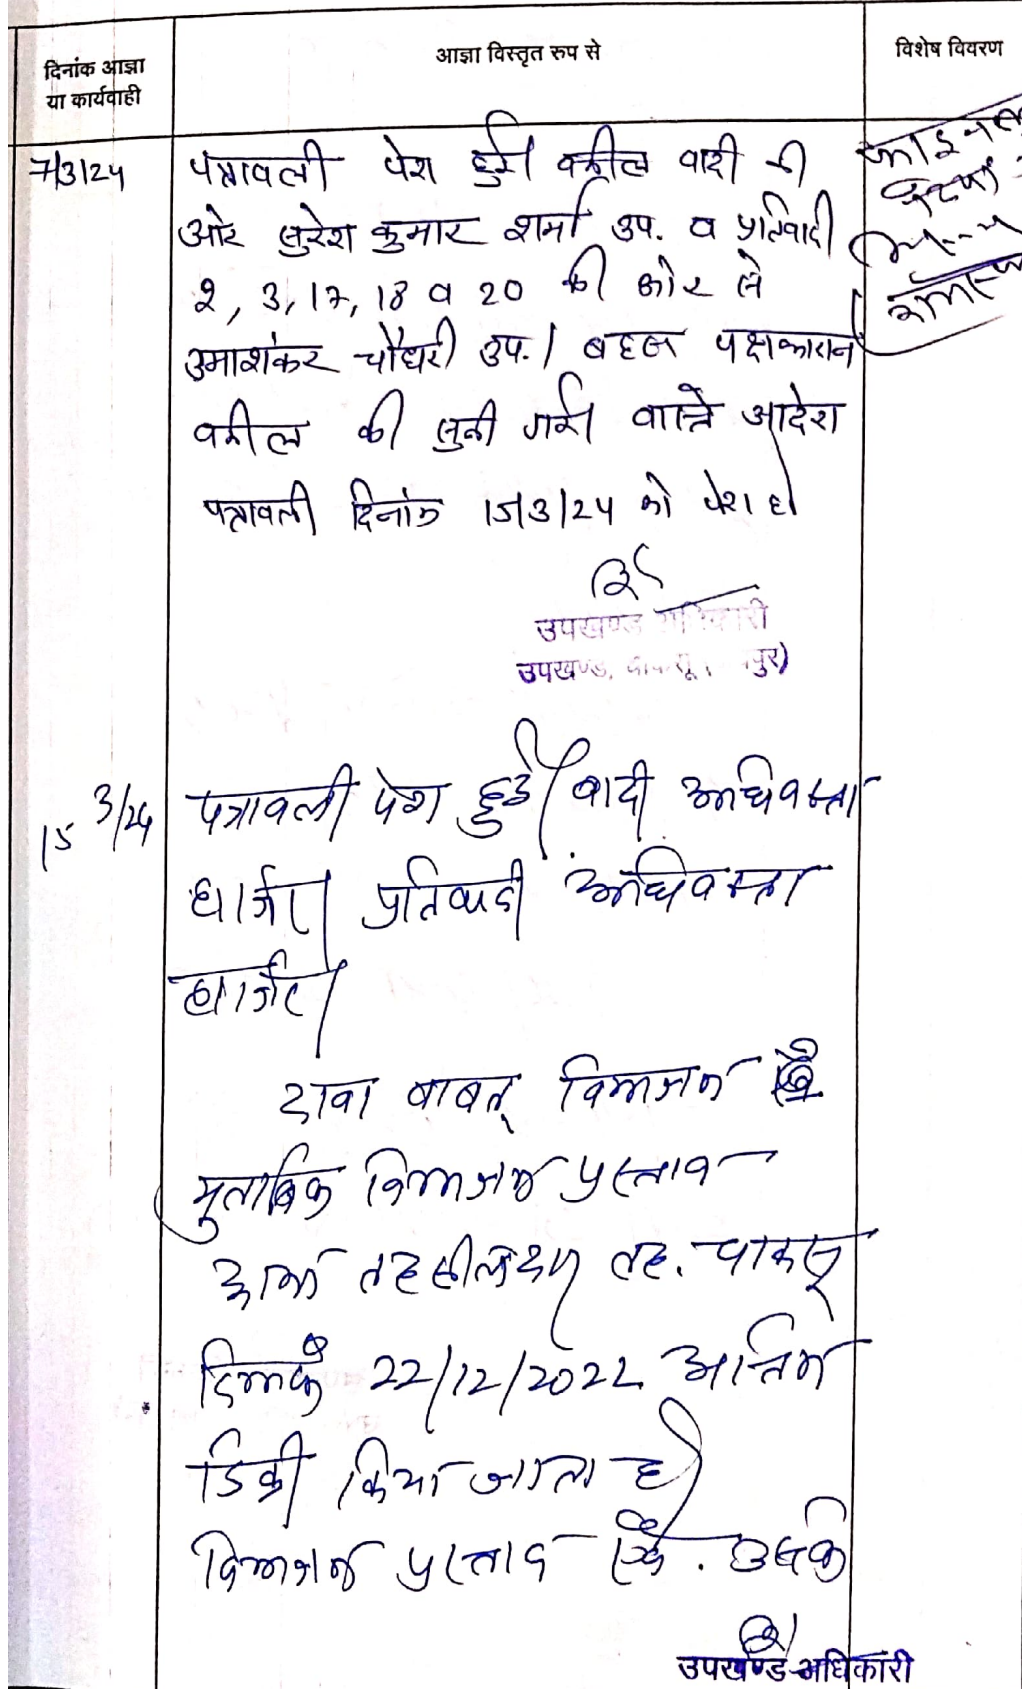 दिनांक आज्ञा
या कार्यवाही
आज्ञा विस्तृत रुप से
विशेष विवरण
7/3/24
पत्रावली पेश हुई। वकील वादी की
ओर सुरेश कुमार शर्मा उप. व प्रतिवादी
2, 3, 17, 18 व 20 की ओर से
उमाशंकर चौधरी उप.। बहस पक्षकारान
वकील की सुनी गई। वास्ते आदेश
पत्रावली दिनांक 15/3/24 को पेश हो
उपखण्ड अधिकारी
उपखण्ड,
15 3/24
पत्रावली पेश हुई। वादी अधिवक्ता
हाजिर। प्रतिवादी अधिवक्ता
हाजिर।
दावा बाबत् विभाजन
मुताबिक विभाजन प्रस्ताव
तहसीलदार तह. चाकसू
दिनांक 22/12/2022 अन्तिम
डिक्री किया जाता है।
विभाजन प्रस्ताव
उपखण्ड अधिकारी